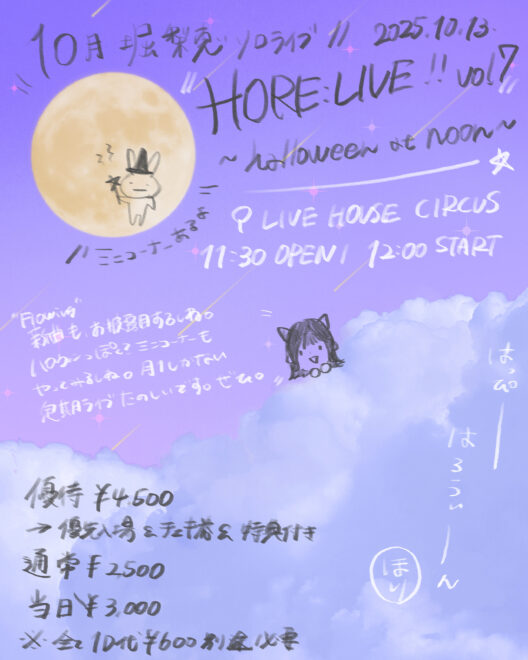 10月 堀梨恵ソロライブ!! 2025.10.13.
HORE:LIVE!! vol7
~halloween at noon~
LIVE HOUSE CIRCUS
11:30 OPEN / 12:00 START
ミニコーナーあるよ
"Flowing"
新曲も、お披露目するしね。
ハロウィンっぽくてミニコーナーも
やってみるしね。月1しかない
定期ライブたのしいです。ぜひ。
はっぴー
はろうぃーん
ほり
優待 ¥4,500
→ 優先入場&チェキ1枚& 特典付き
通常 ¥2,500
当日 ¥3,000
※全て1D代¥600別途必要